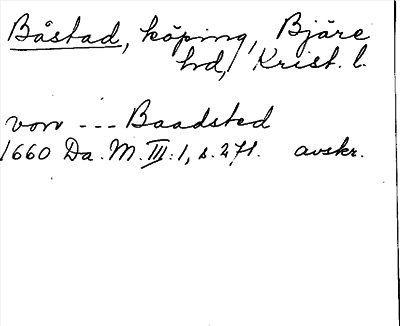 Båstad, köping, Bjäre
hd, Krist. l.
von --- Baadsted
1660 Da. M. III: 1, s. 271. avskr.